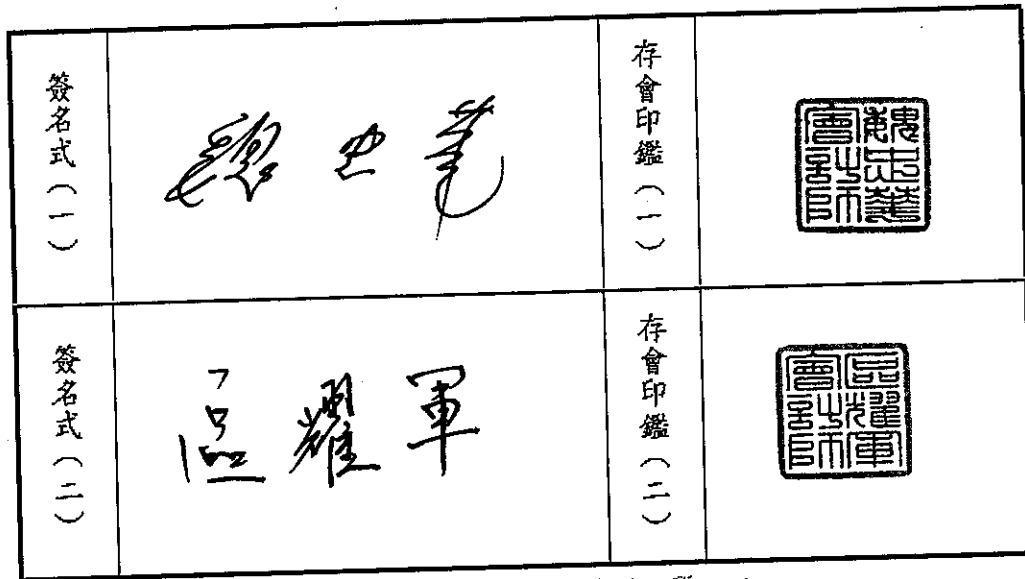 簽名式(一)
魏忠華
存會印鑑(一)
魏忠華會計師
簽名式(二)
區耀軍
存會印鑑(二)
區耀軍會計師